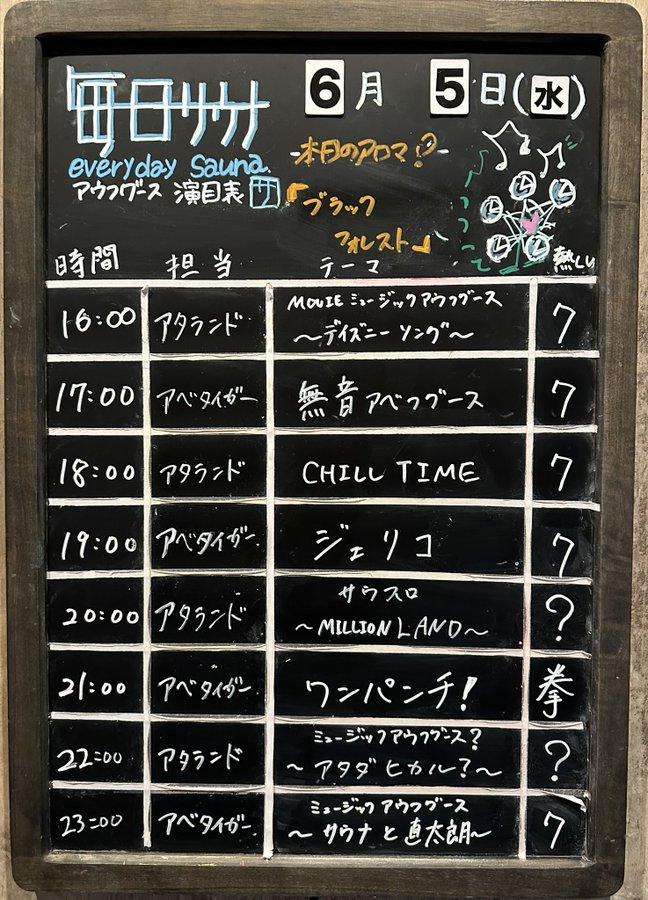 毎日サウナ
everyday Sauna.
アウフグース 演目表 サ
6月 5日(水)
本日のアロマ!?
「ブラック
フォレスト」
時間 担当 テーマ 熱しん
16:00 アタランド MOVIE ミュージック アウフグース
〜ディズニー ソング〜 7
17:00 アベタイガー 無音アベフグース 7
18:00 アタランド CHILL TIME 7
19:00 アベタイガー ジェリコ 7
20:00 アタランド サウスロ
〜MILLION LAND〜 ?
21:00 アベタイガー ワンパンチ! 拳
22:00 アタランド ミュージックアウフグース?
〜アタダ ヒカル?〜 ?
23:00 アベタイガー ミュージック アウフグース
〜サウナと直太朗〜 7